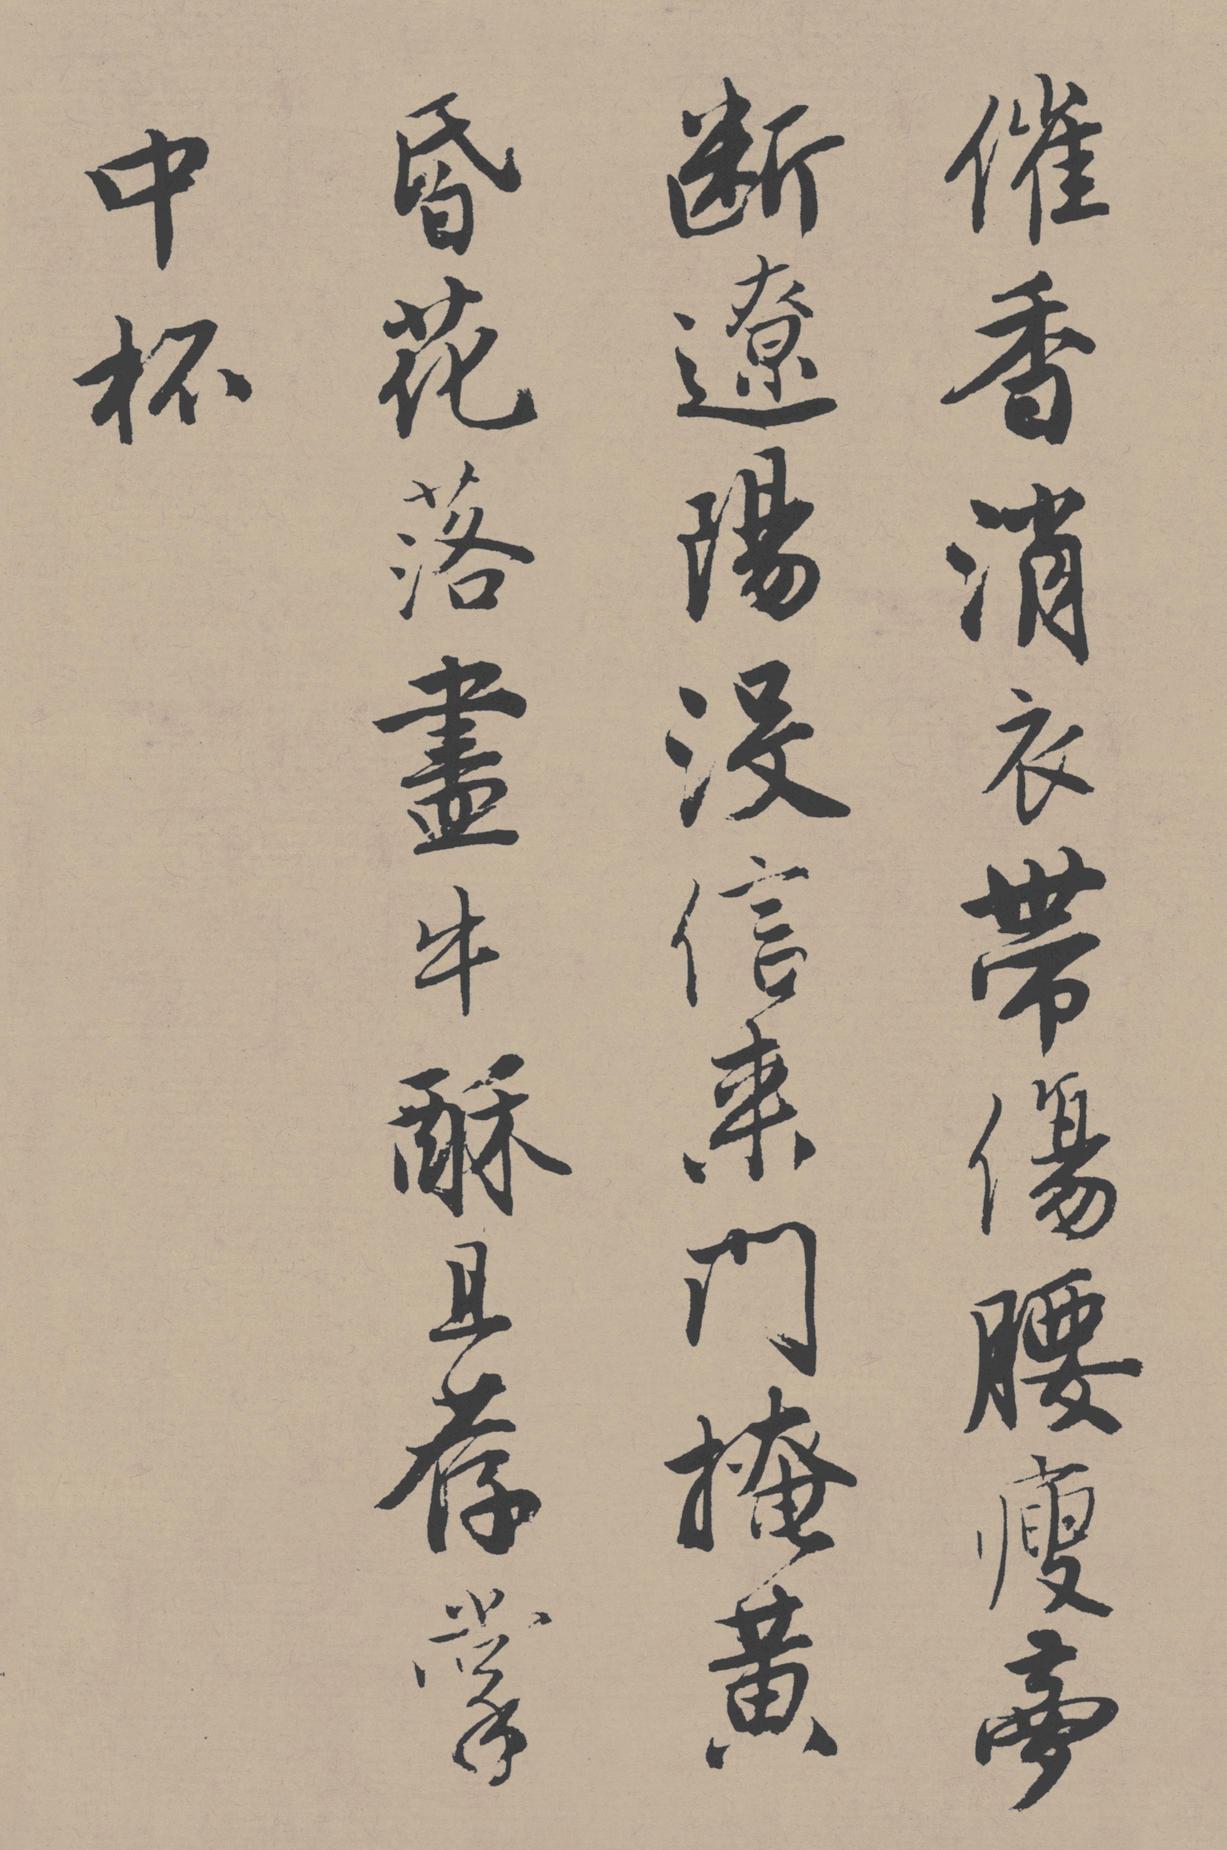 催香消衣帶傷腰瘦夢
斷遼陽没信来門掩黄
昏花落盡牛酥且荐掌
中杯